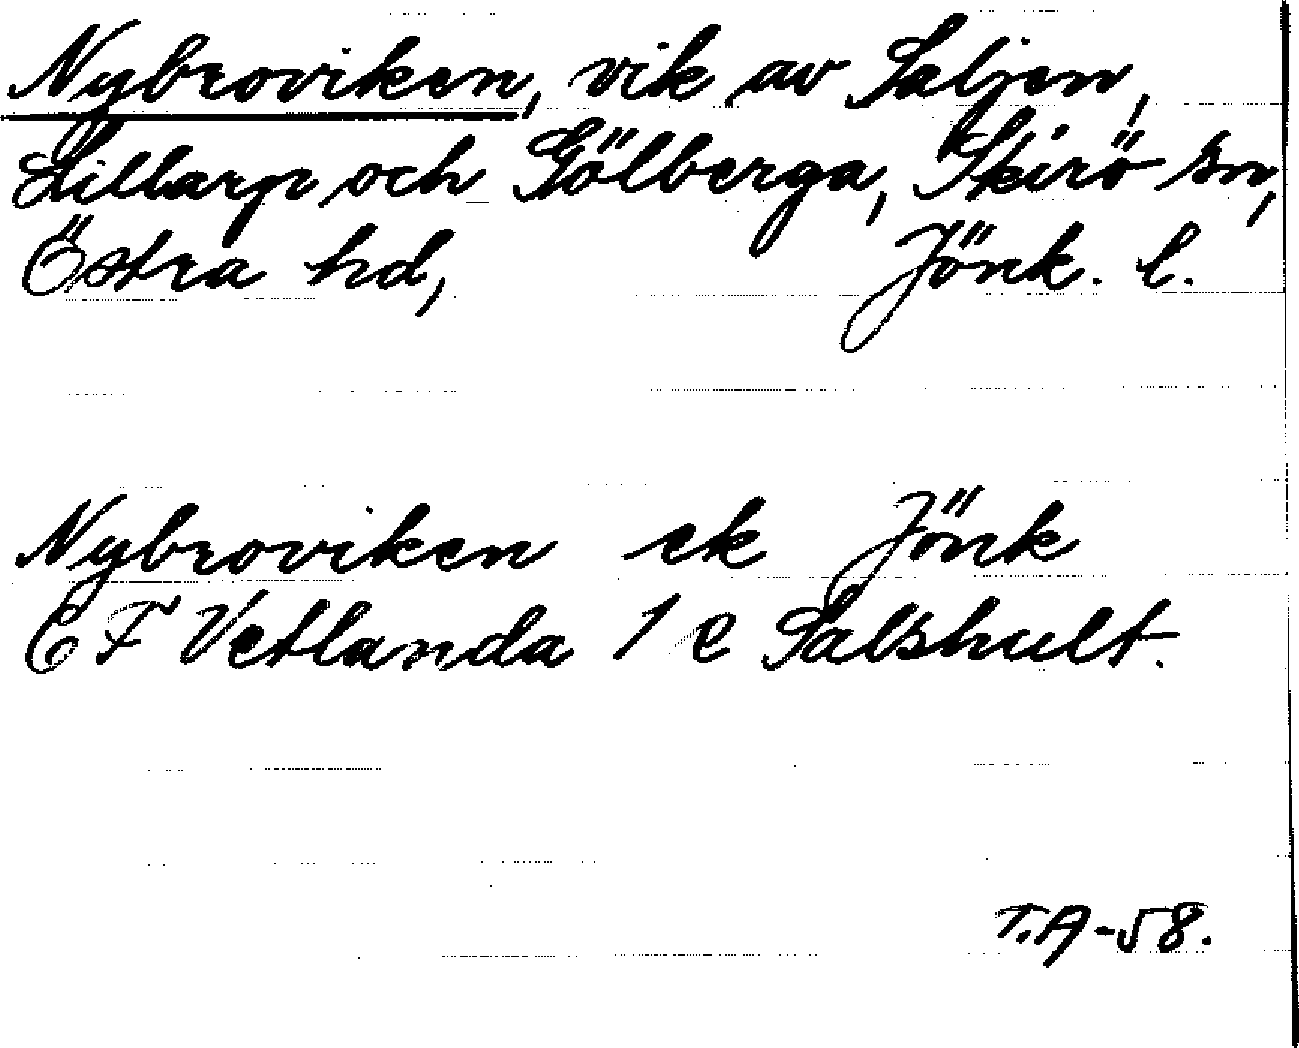 Nybroviken, vik av Saljen,
Hillarp och Gölberga, Skirö sn,
Östra hd, Jönk. l.
Nybroviken ek Jönk
EF Vetlanda 1 e Salshult.
T.A-58.